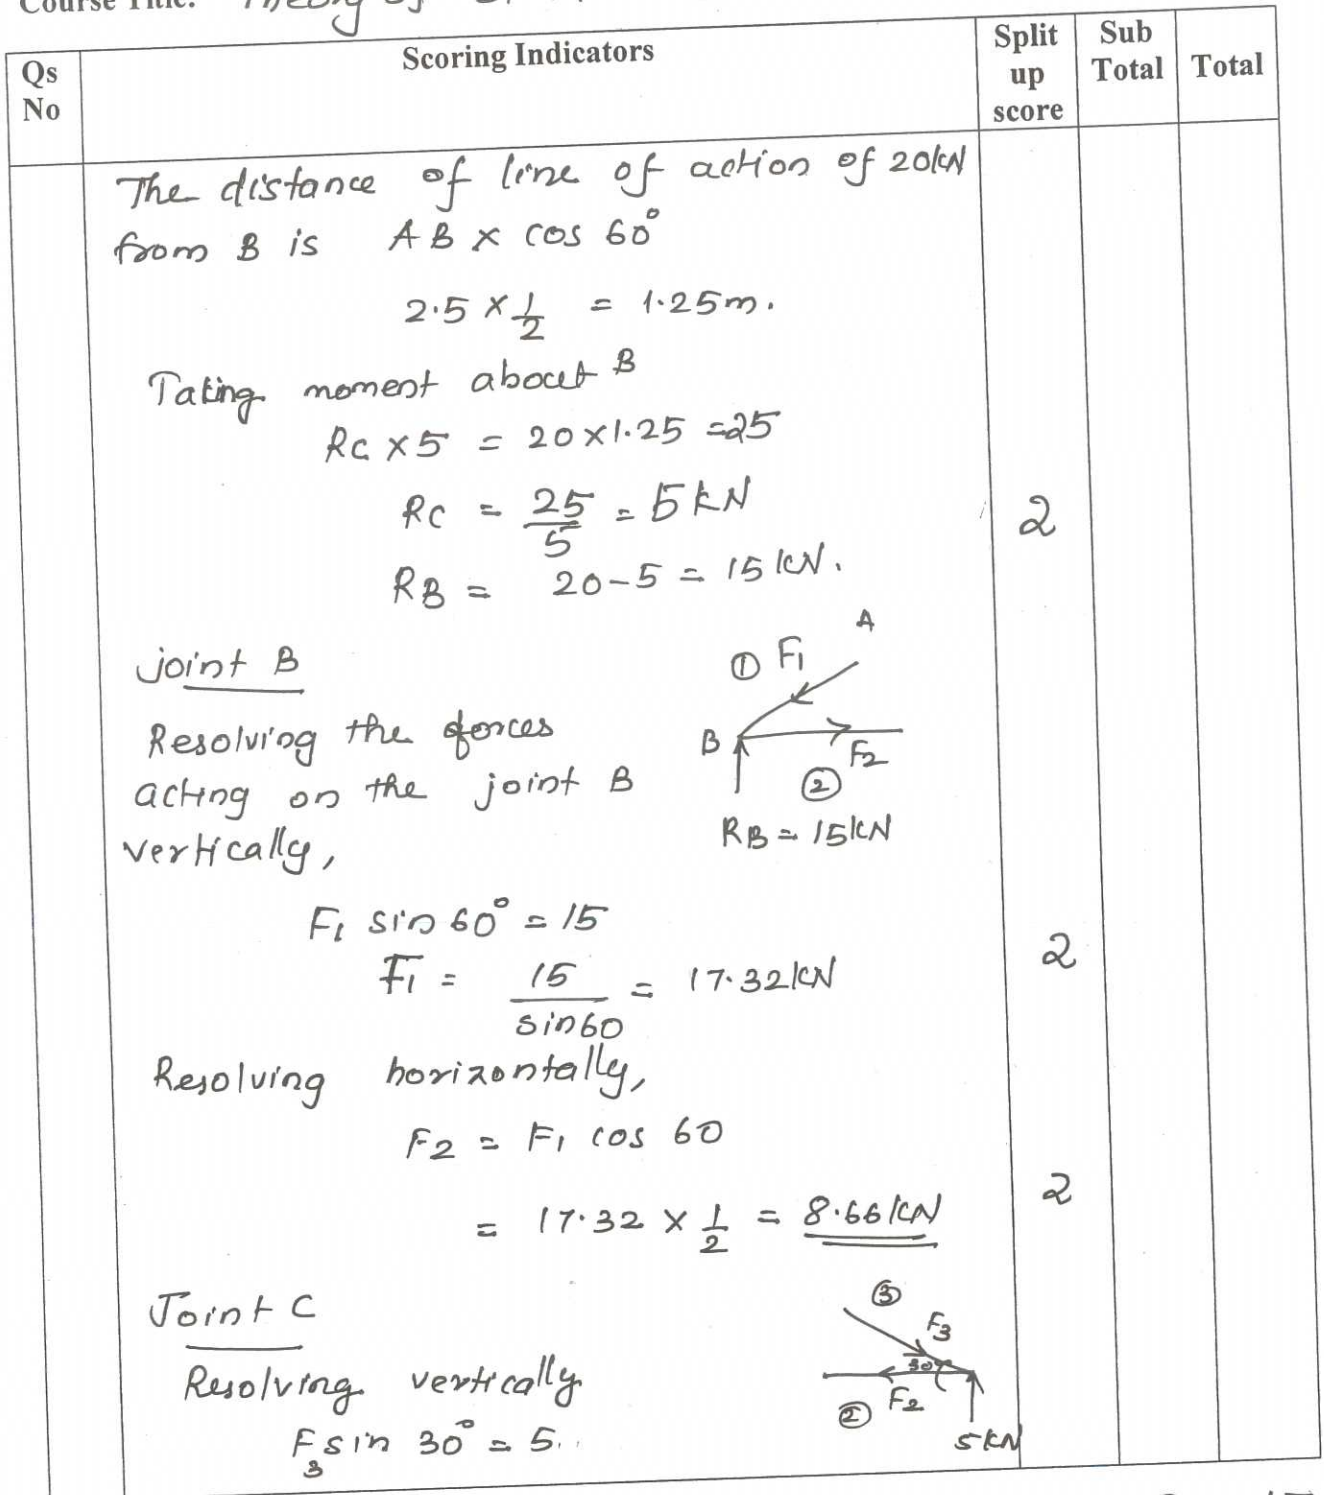 Course Title: Theory of
Qs No
Scoring Indicators
Split up score
Sub Total
Total
The distance of line of action of 20kN
from B is AB x cos 60°
2.5 x 1/2 = 1.25m.
Taking moment about B
RC x 5 = 20 x 1.25 = 25
RC = 25/5 = 5 kN
2
RB = 20 - 5 = 15 kN.
joint B
A
① F1
B
F2
②
RB = 15kN
Resolving the forces
acting on the joint B
vertically,
F1 sin 60° = 15
F1 = 15/sin60 = 17.32kN
2
Resolving horizontally,
F2 = F1 cos 60
= 17.32 x 1/2 = 8.66kN
2
Joint C
③
F3
30°
② F2
5kN
Resolving vertically
F3 sin 30° = 5.